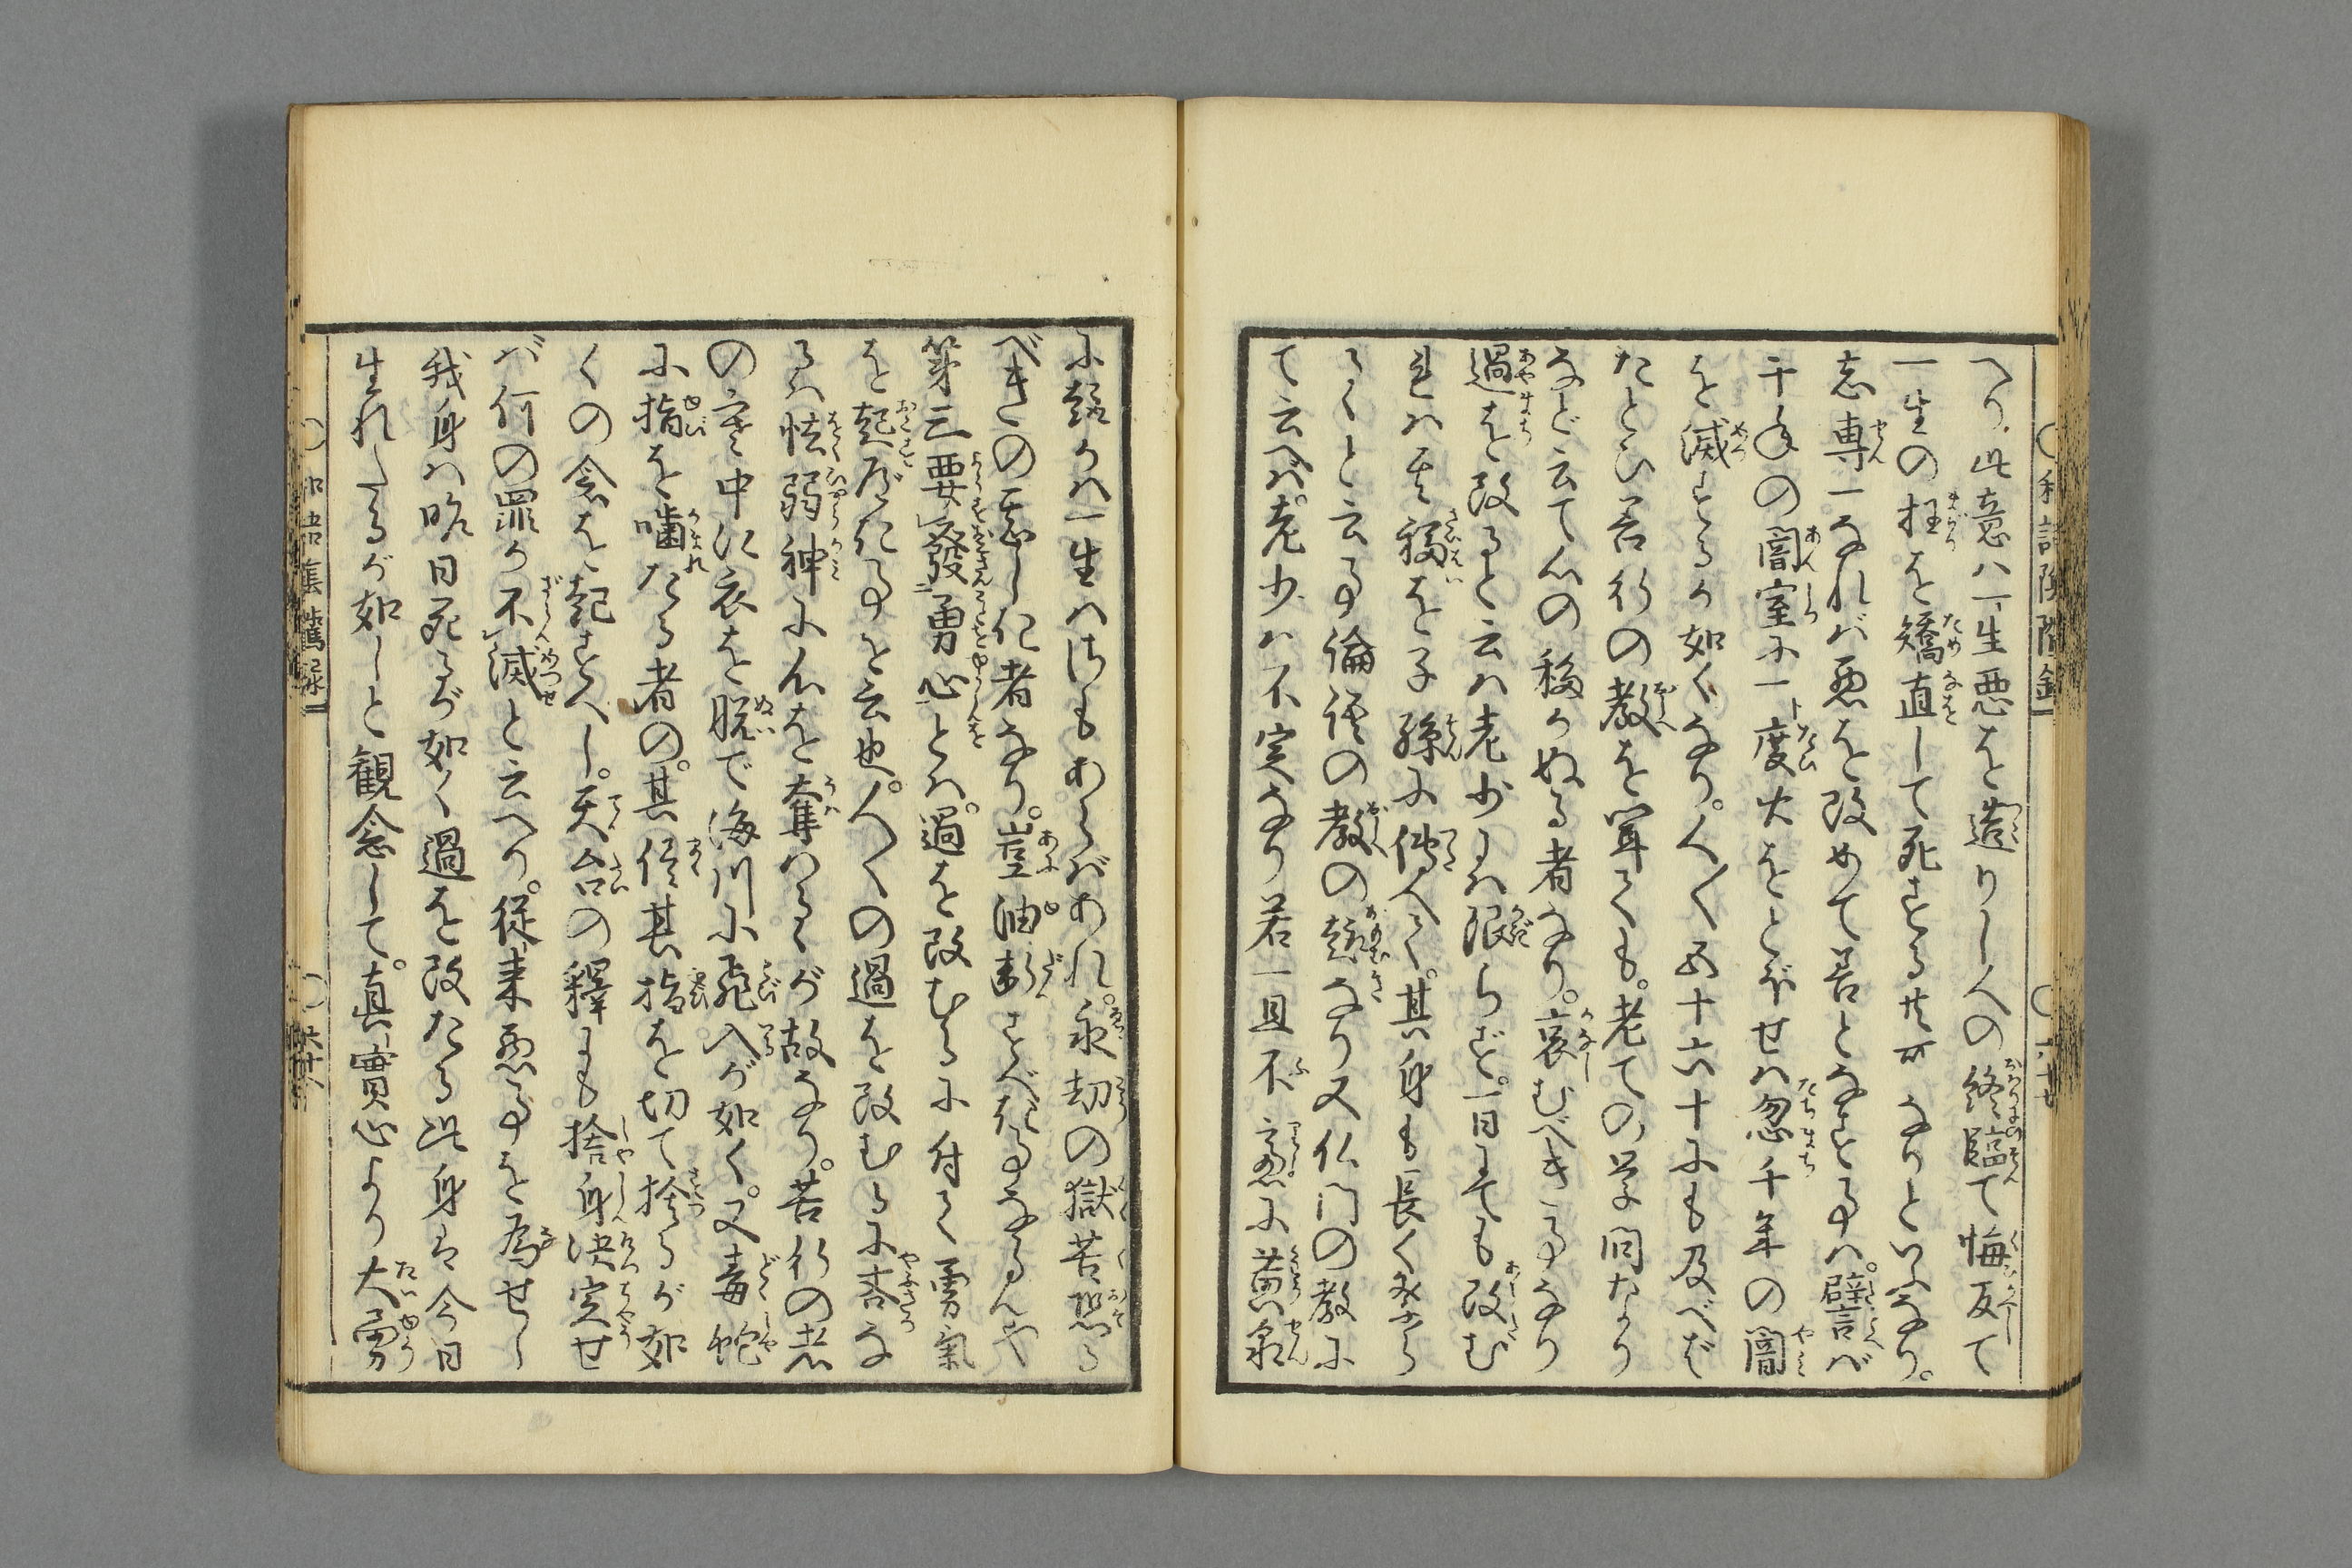 へり。此意ハ一生悪を造りし人の終臨て悔反て
一生の枉を矯直して死する者なりといふなり。
志専一なれバ悪を改めて善となする事ハ。譬バ
千年の闇室に一度火をとぼせハ忽千年の闇
を滅するか如くなり。人〱五十六十にも及べど
たとひ善行の教を聞ても。老ての学問たより
などゝ云て心の移かぬる者なり。哀むべき事なり
過を改ると云ハ老少には限らず。一日にても改む
れハ其福を子孫に傳へて。其身も長く
と云る事倫語の教の趣なり又仏門の教に
て云へバ。老少ハ不実なり若一旦不慮に黄泉
に趣かハ一生ハさもあらばあれ。永劫の獄苦恐る
べきの甚しき者なり。豈油断すべき事ならんや
第三要發勇心とハ。過を改むるに付て勇氣
を起ずべき事を云也。人〱の過を改むるに吝な
るハ怯弱神に心を奪ハるゝが故なり。苦行の者
の寒中に衣を脱で海川に飛入が如く。又毒蛇
に指を噛たる者の。其侭其指を切て捨るが如
くの念を起すへし。天台の釋にも捨身決定せ
バ何の罪か不滅と云へり。従来悪事を為せし
我身ハ昨日死るが如く過を改たる此身は今日
生れたるが如しと観念して。真實心より大勇